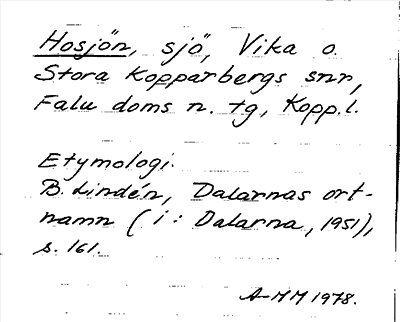 Hosjön, sjö, Vika o.
Stora Kopparbergs snr,
Falu doms n. tg, Kopp.l.
Etymologi.
B. Lindén, Dalarnas ort-
namn (i: Dalarna, 1951),
s. 161.
A-MM 1978.